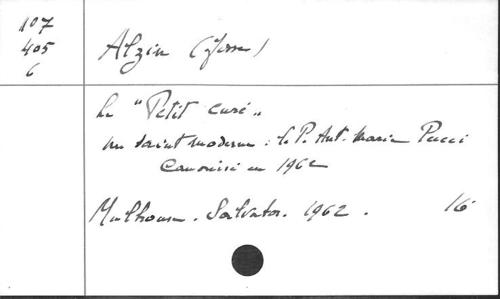 107
405
6
Alzin (Josse)
Le "Petit curé"
un saint moderne : le P. Ant. Maria Pucci
Canonisé en 1962
Mulhouse. Salvator. 1962. 16